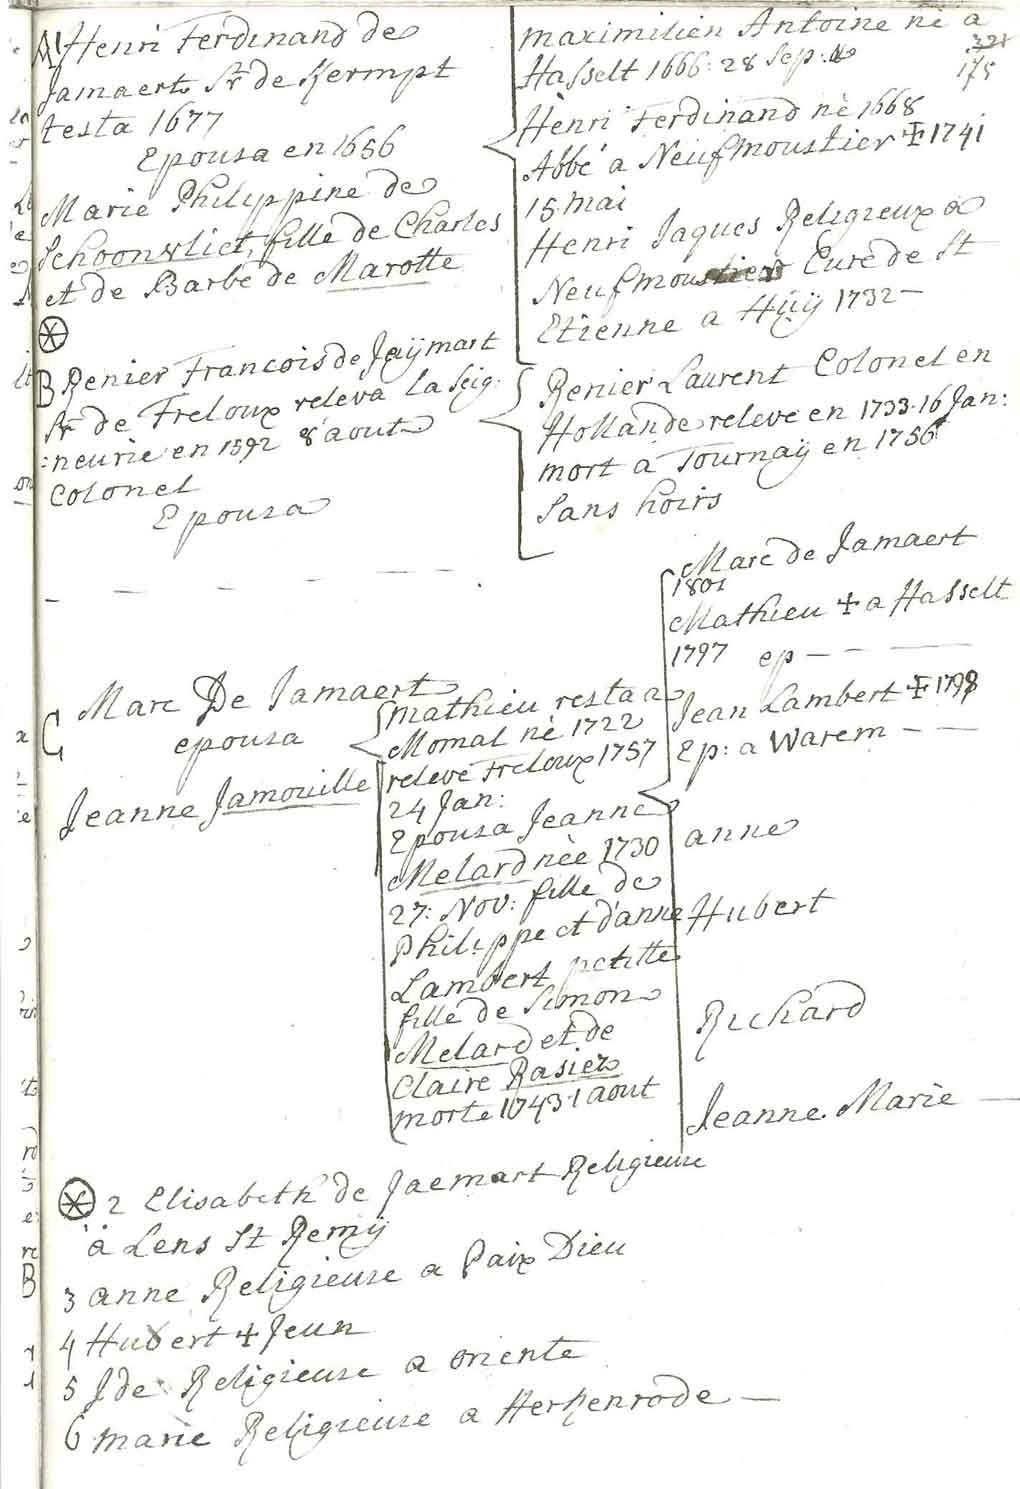 A1 Henri Ferdinand de
Jamaert Sr de Kermpt
testa 1677
Epousa en 1656
Marie Philippine de
Schoonvliet, fille de Charles
et de Barbe de Marotte
maximilien Antoine né a
Hasselt 1666: 28 Sep:
321
175
Henri Ferdinand né 1668
Abbé a Neufmoustier + 1741
15 mai
Henri Jaques Religieux a
Neufmoustier Curé de St
Etienne a Hüÿ 1732 –
B Renier Francois de Jaÿmart
Sr de Freloux releva la Seig:
:neurie en 1592 8 aout
Colonel
Epousa
Renier Laurent Colonel en
Hollande releve en 1733. 16 Jan:
mort a Tournaÿ en 1756
Sans hoirs
C Marc De Jamaert
epousa
Jeanne Jamouille
mathieu resta a
Momal né 1722
releve Freloux 1757
24 Jan:
Epousa Jeanne
Melard née 1730
27: Nov: fille de
Philippe et d'anne
Lambert petitte
fille de Simon
Melard et de
Claire Rasier
morte 1743. 1 aout
Marc de Jamaert
1801
Mathieu + a Hasselt
1797 ep – – – –
Jean Lambert + 1798
Ep: a Warem – –
anne
Hubert
Richard
Jeanne. Marie –
2 Elisabeth de Jaemart Religieuse
à Lens St Remÿ
3 anne Religieuse a Paix Dieu
4 Hubert + Jeun
5 Ide Religieuse a oriente
6 marie Religieuse a Herkenrode –